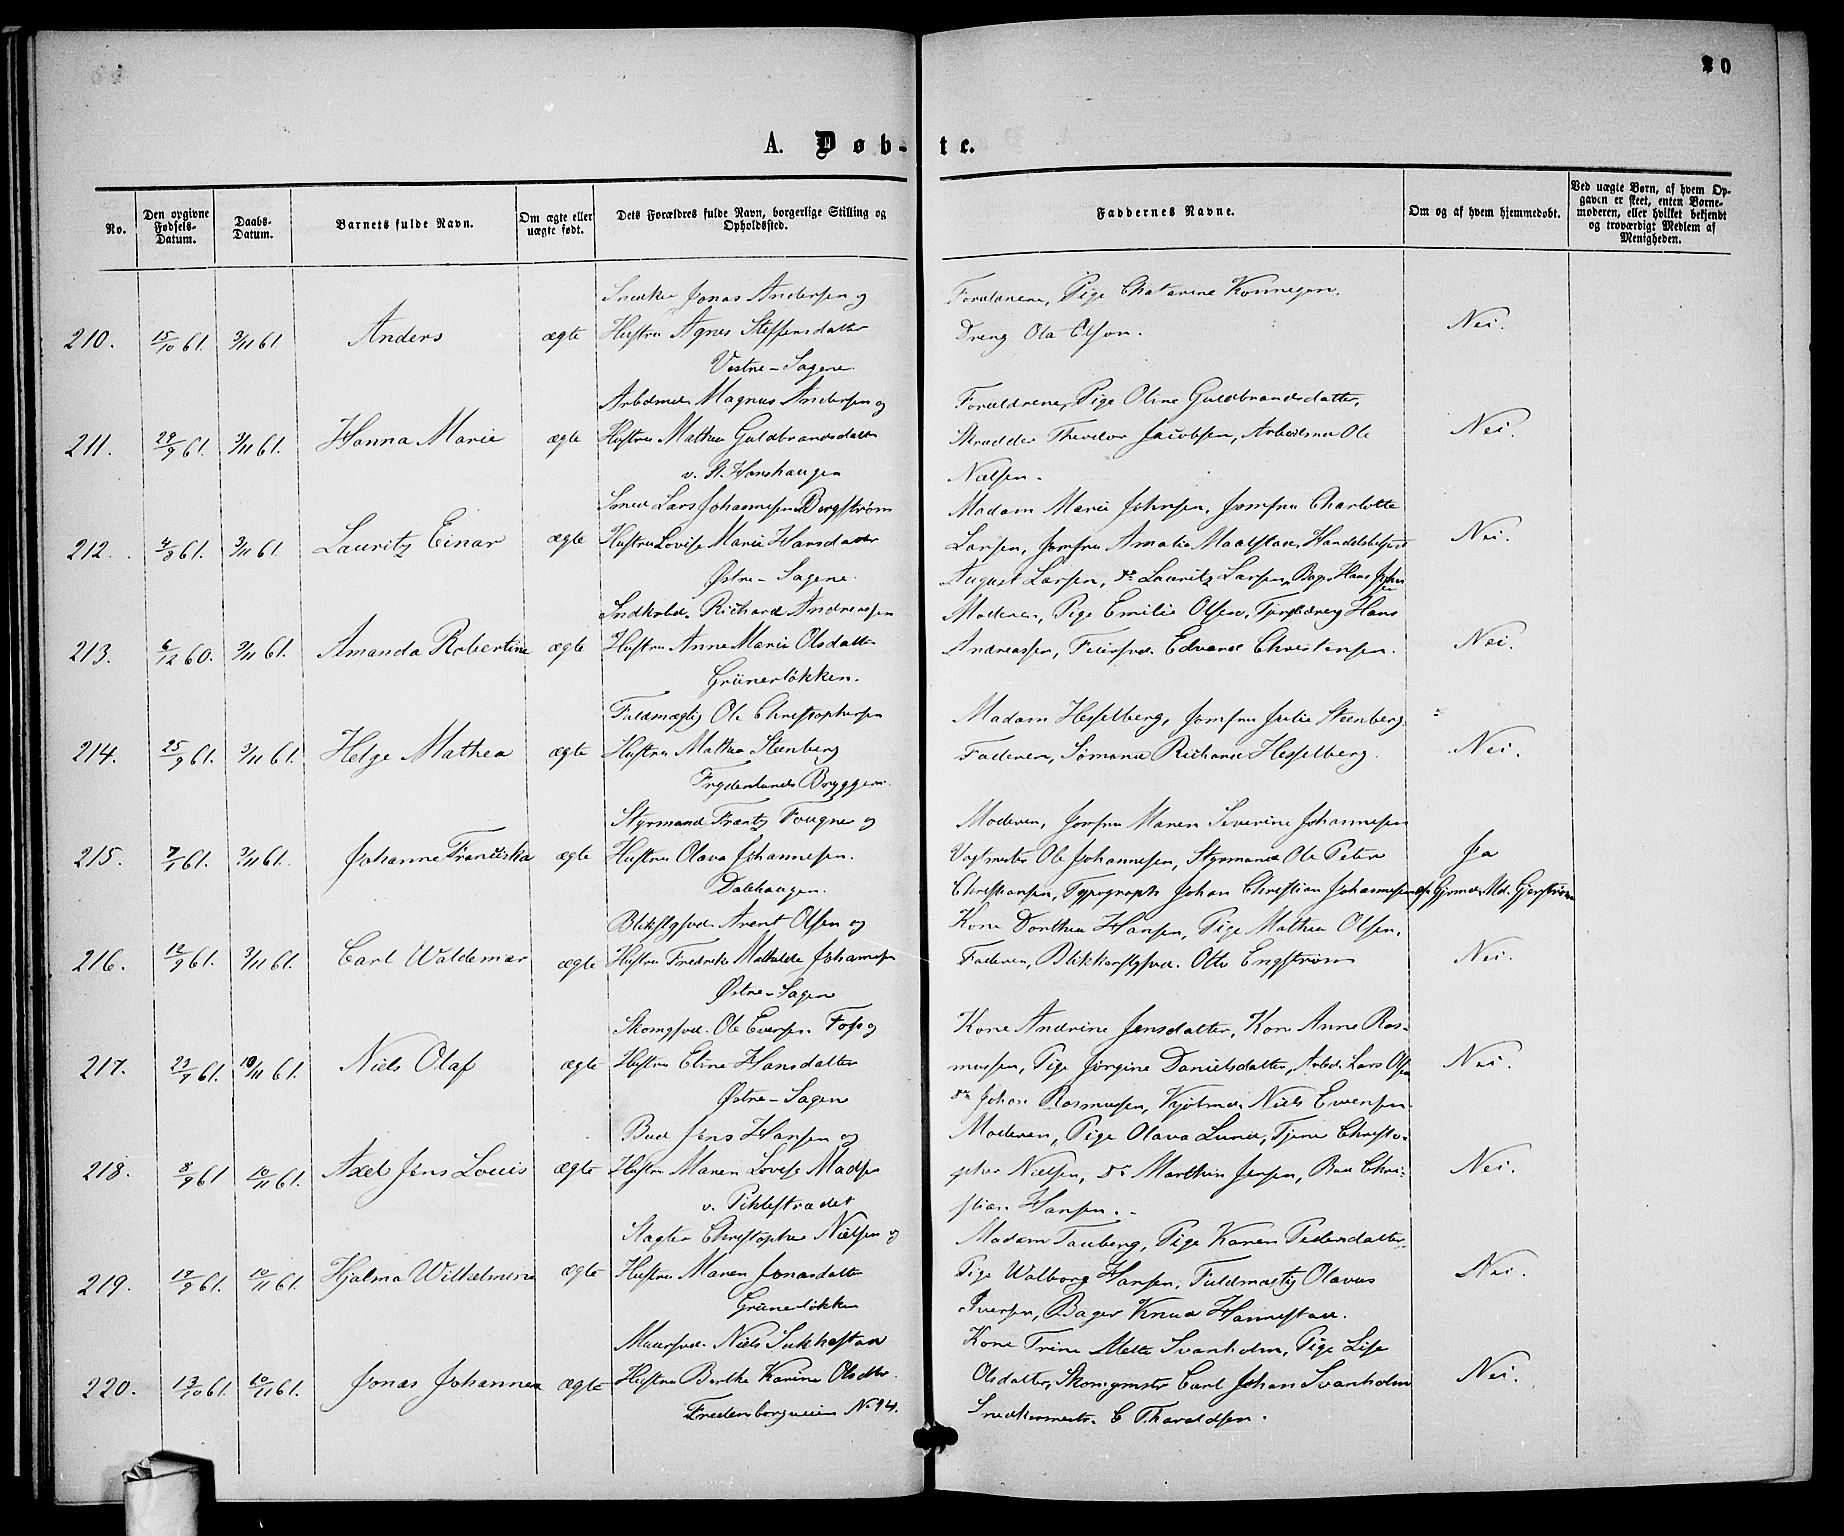 20
A. Døb-te.
No.
Den opgivne Fødsels-Datum.
Daabs-Datum.
Barnets fulde Navn.
Om ægte eller uægte født.
Dets Forældres fulde Navn, borgerlige Stilling og Opholdssted.
Faddernes Navne.
Om og af hvem hjemmedøbt.
Ved uægte Børn, af hvem Opgaven er skeet, enten Barnemoderen, eller hvilket bekjendt og troværdigt Medlem af Menigheden.
210. 15/10 61. 3/11 61. Anders ægte
Snedker Jonas Andersen og
Hustru Agnes Steffensdatter
Vestre-Sagene.
Forældrene, Pige Chatarine Konnegen,
Dreng Ola Olson.
Nei.
211. 29/9 61. 3/11 61. Hanna Marie ægte
Arbdmd. Magnus Andersen og
Hustru Mathea Guldbrandsdatter
v. St. Hanshaugen
Forældrene, Pige Oline Guldbrandsdatter,
Skrædder Theodor Jacobsen, Arbeidsmd Ole
Nielsen.
Nei.
212. 4/8 61. 3/11 61. Lauritz Einar ægte
Smed Lars Johannesen Bergstrøm
Hustru Lovise Marie Hansdatter
Østre-Sagene.
Madam Marie Johnsen, Jomfru Charlotte
Larsen, Jomfru Amalia Maalstad, Handelsbetjent
August Larsen, do Lauritz Larsen, Bager Hans Johnsen
Nei.
213. 6/12 60. 3/11 61. Amanda Robertine ægte
Richard Andreassen
Hustru Anne Marie Olsdatter
Grünerløkken.
Moderen, Pige Emilie Olsen, Hans
Andreassen, Feiersvd. Edvard Christensen.
Nei.
214. 25/9 61. 3/11 61. Helge Mathea ægte
Fuldmægtig Ole Christophersen
Hustru Mathea Steenberg
Frydenlunds Bryggeri.
Madam Hesselberg, Jomfru Julie Steenberg,
Faderen, Sømand Richard Hesselberg.
Nei.
215. 7/1 61. 3/11 61. Johanne Franciska ægte
Styrmand Frantz Fougner og
Hustru Olava Johannesen.
Dalehaugen.
Moderen, Jomfru Maren Severine Johannesen
Vagtmester Ole Johannesen, Styrmand Ole Peter
Christiansen, Typograph Johan Christian Johannesen
Ja
af Gjordmd. Md. Gjerstrøm
216. 12/9 61. 3/11 61. Carl Waldemar ægte
Blikslgsvd. Arent Olsen og
Hustru Fredrikke Mathilde Johannesen
Østre-Sagene
Kone Dorthea Hansen, Pige Mathea Olsen,
Faderen, Blikkenslgsvd. Otto Engstrøm
Nei.
217. 22/9 61. 10/11 61. Niels Olaf ægte
Skomgsvd. Ole Eversen Foss og
Hustru Eline Hansdatter
Østre-Sagene
Kone Andrine Jensdatter, Kone Anne Ras-
mussen, Pige Jørgine Danielsdatter, Arbd. Lars Olsen
do Johan Rasmussen, Kjøbmd. Niels Evensen.
Nei.
218. 8/9 61 10/11 61. Axel Jens Louis ægte
Bud Jens Hansen og
Hustru Maren Lovise Madsen
v. Pilestrædet
Moderen, Pige Olava Lund, Tjener Christo-
pher Nielsen, do Marthin Jensen, Bud Chri-
stian Hansen.
Nei.
219. 17/9 61. 10/11 61. Hjalma Wilhelmine ægte
Slagter Christopher Nielsen og
Hustru Maren Jonasdatter
Grünerløkken
Madam Tauberg, Pige Karen Pedersdatter,
Pige Walborg Hansen, Fuldmægtig Olavus
Iversen, Bager Knud Hannestad.
Nei.
220. 13/10 61. 10/11 61. Jonas Johannes ægte
Muursvd. Niels
Hustru Berthe Karine Olsdtr.
Fredensborgveien No 94.
Kone Trine Mette Svanholm, Pige Lise
Olsdatter, Skomgmstr Carl Johan Svanholm
Snedkermestr. C Tharaldsen.
Nei.